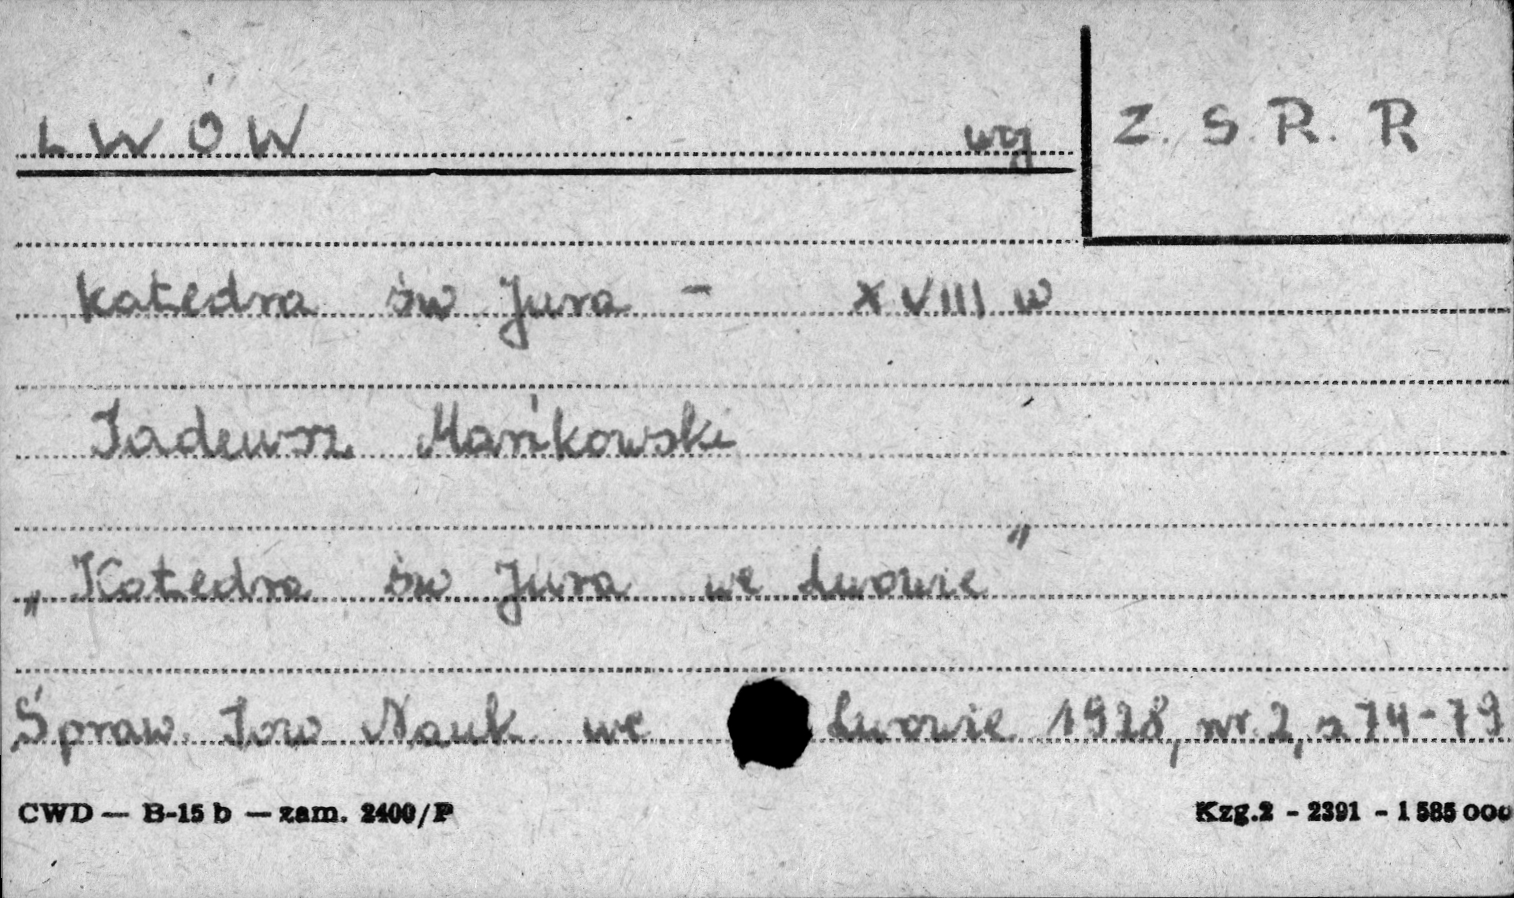 LWÓW wg Z.S.R.R
Katedra św Jura - XVIII w
Tadeusz Mańkowski
„Katedra św Jura we Lwowie"
Spraw. Tow Nauk we Lwowie 1928, nr. 2, s. 74-79
CWD — B-15 b — zam. 2400/P Kzg.2 - 2391 - 1 585 000